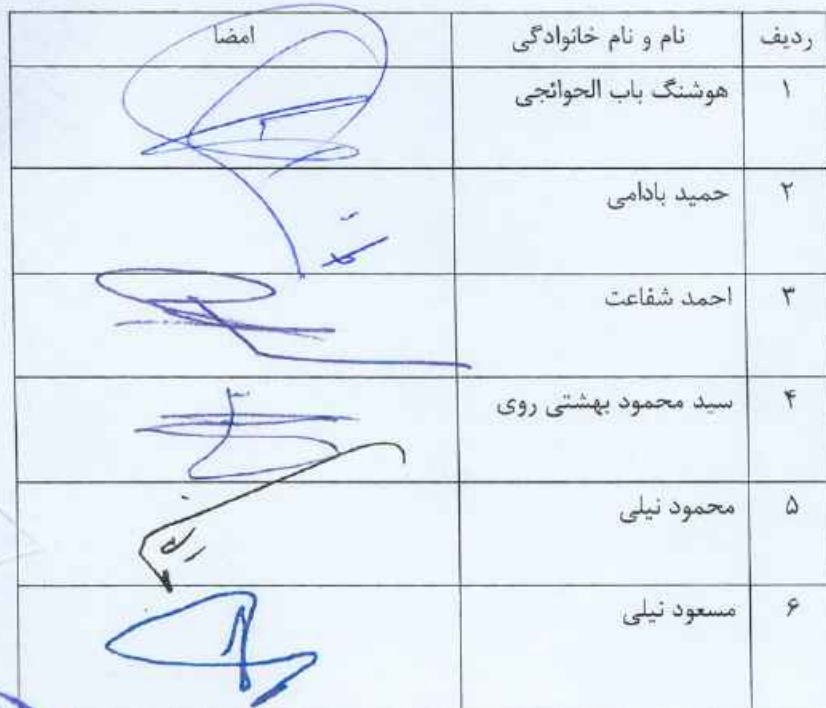 ردیف نام و نام خانوادگی امضا
۱ هوشنگ باب الحوائجی
۲ حمید بادامی
۳ احمد شفاعت
۴ سید محمود بهشتی روی
۵ محمود نیلی
۶ مسعود نیلی